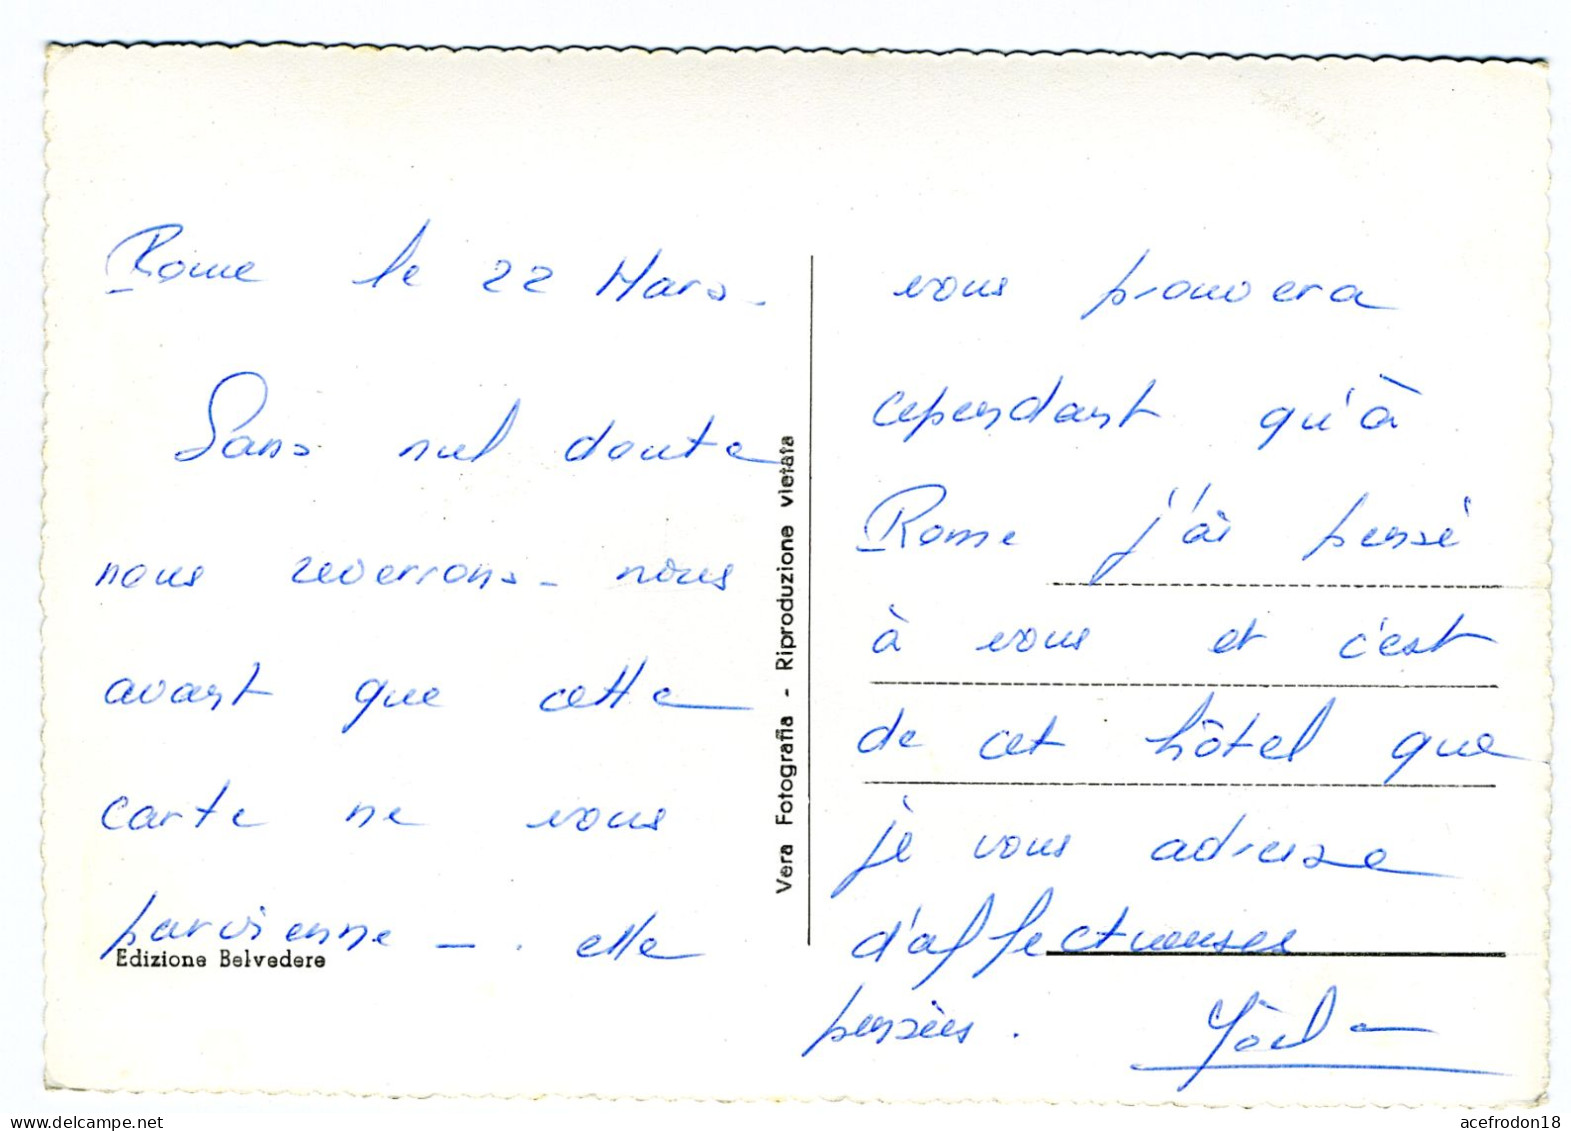 Rome le 22 Mars -
Sans nul doute
nous reverrons - nous
avant que cette
carte ne vous
parvienne - . elle
Edizione Belvedere
Vera Fotografia - Riproduzione vietata
vous prouvera
cependant qu'à
Rome j'ai pensé
à vous et c'est
de cet hôtel que
je vous adresse
d'affectueuses
pensées . Joël
delcampe.net
acefrodon18